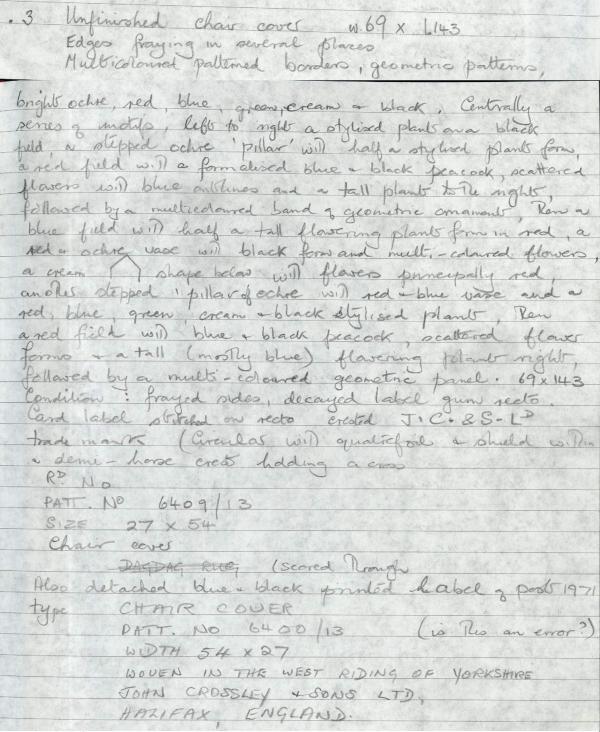 .3 Unfinished chair cover w.69 x L143
Edges fraying in several places
Multicoloured patterned borders, geometric patterns,
bright ochre, red, blue, green, cream & black, Centrally a
series of motifs, left to right a stylised plant on a black
field, a stepped ochre 'pillar' with half a stylised plant form,
a red field with a formalised blue & black peacock, scattered
flowers with blue outlines and a tall plant to the right,
followed by a multicoloured band of geometric ornaments, then a
blue field with half a tall flowering plant form in red, a
red & ochre vase with black form and multi-coloured flowers,
a cream shape below with flowers principally red,
another stepped 'pillar of ochre with red & blue vase and a
red, blue, green cream & black stylised plant, then
a red field with blue & black peacock, scattered flower
forms & a tall (mostly blue) flowering plant right,
followed by a multi-coloured geometric panel. 69x143
Condition : frayed sides, decayed label gum recto.
Card label stitched on recto J.C. & S - LD
trade mark (Circular with quatrefoil & shield within
a demi-horse crest holding a cross
RD No
PATT. No 6409/13
SIZE 27 x 54
Chair cover
(scored through
Also detached blue & black printed label of post 1971
type CHAIR COVER
PATT. NO 6400/13 (is this an error?)
WIDTH 54 x 27
WOVEN IN THE WEST RIDING OF YORKSHIRE
JOHN CROSSLEY & SONS LTD,
HALIFAX, ENGLAND.